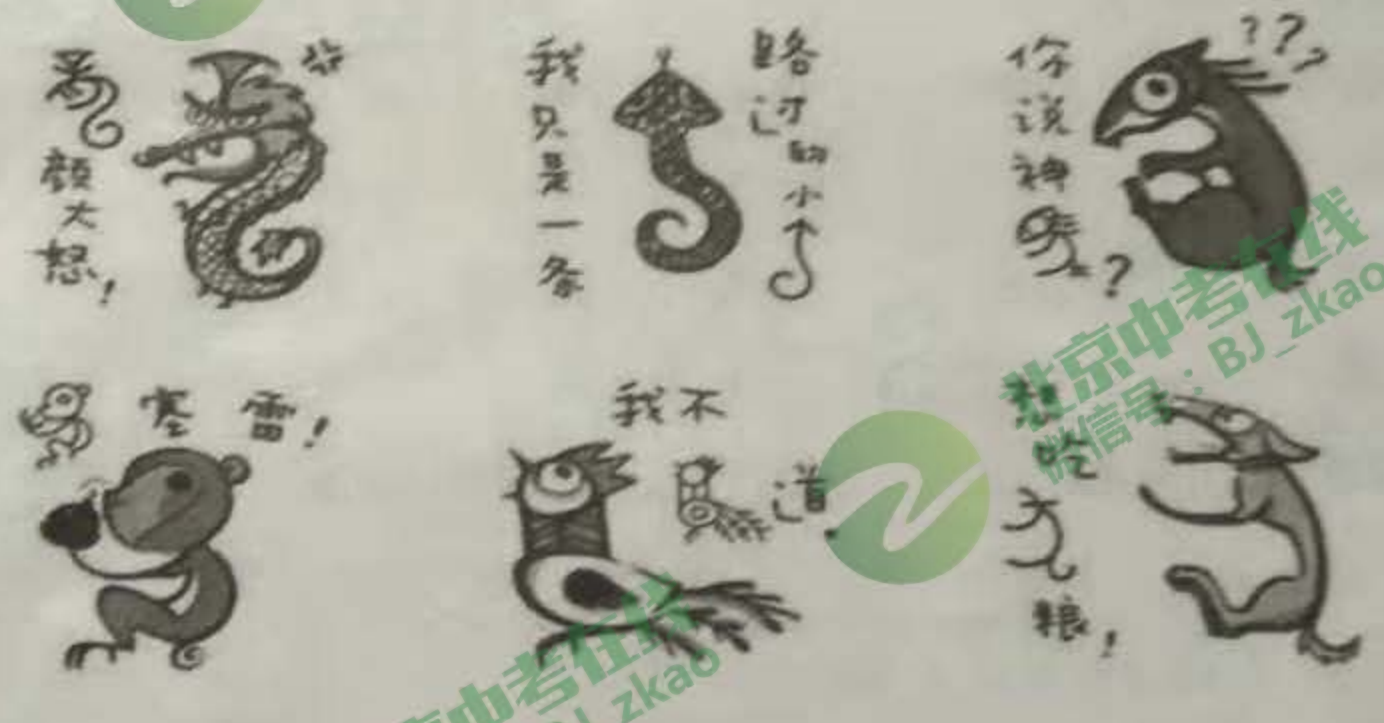 颜大怒!
我只是一条
路过的小
你说神?
???
塞雷!
我不
道
吃
粮!
北京中考在线
微信号：BJ_zkao
京中考在线
BJ_zkao